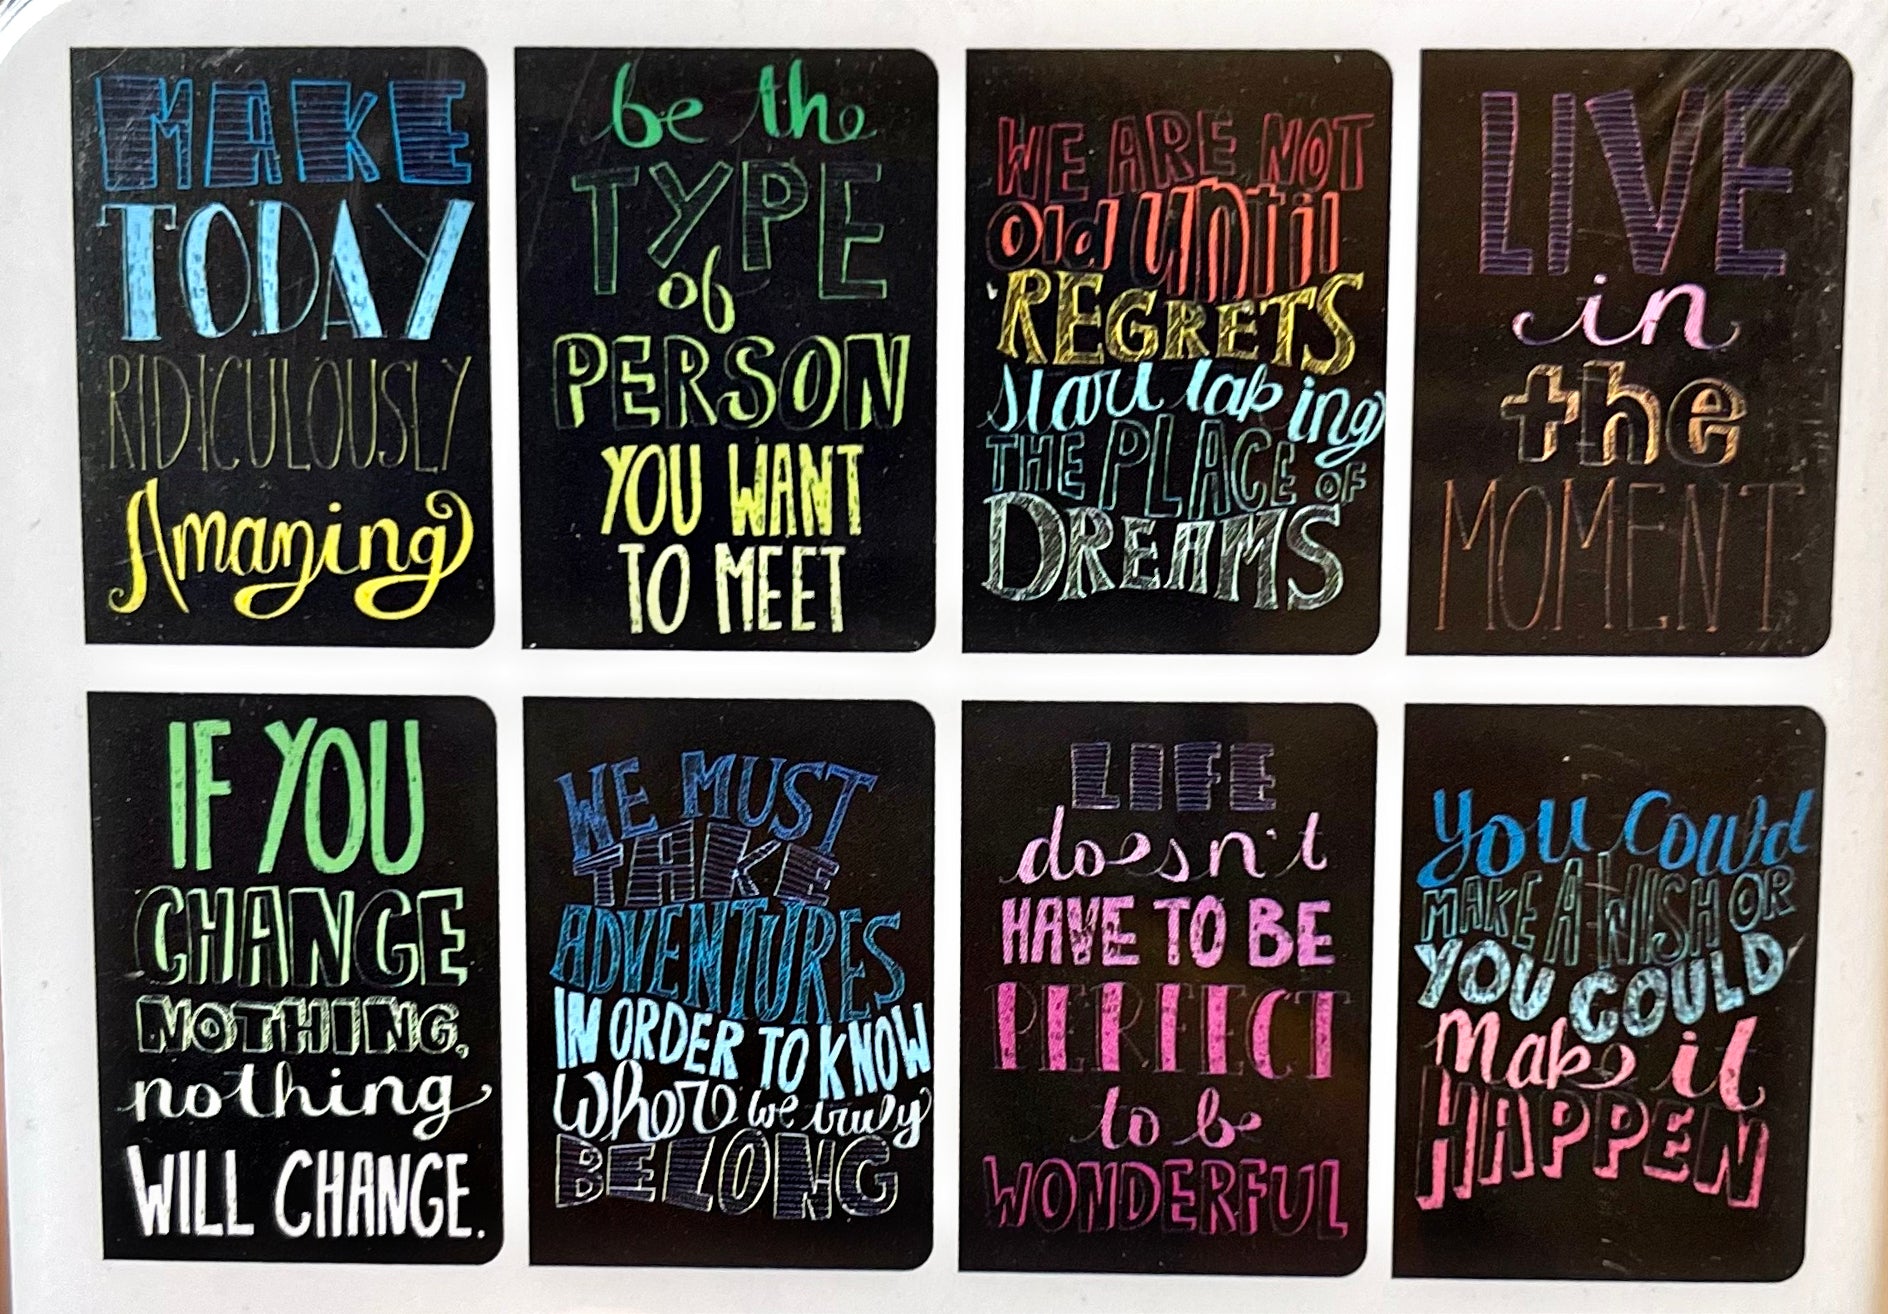 MAKE
TODAY
RIDICULOUSLY
Amazing
be the
TYPE
of
PERSON
YOU WANT
TO MEET
WE ARE NOT
Old UNtil
REGRETS
start taking
THE PLACE OF
DREAMS
LIVE
in
the
MOMENT
IF YOU
CHANGE
NOTHING,
nothing
WILL CHANGE.
WE MUST
TAKE
ADVENTURES
IN ORDER TO KNOW
where we truly
BELONG
LIFE
doesn't
HAVE TO BE
PERFECT
to be
WONDERFUL
you could
MAKE A WISH OR
YOU COULD
Make it
HAPPEN